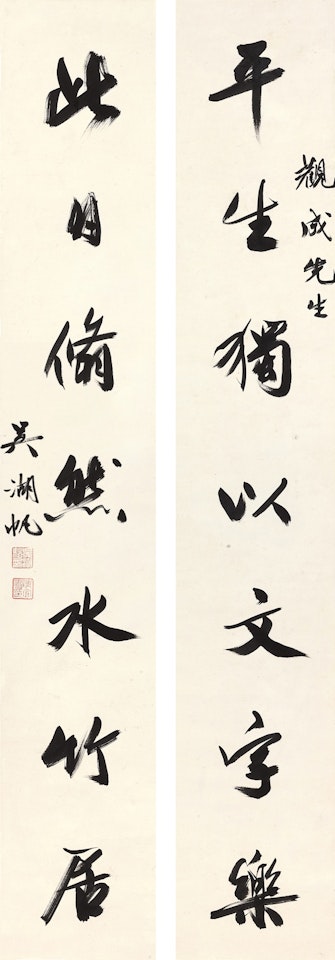 觀成先生
平生獨以文字樂
此日翛然水竹居
吳湖帆